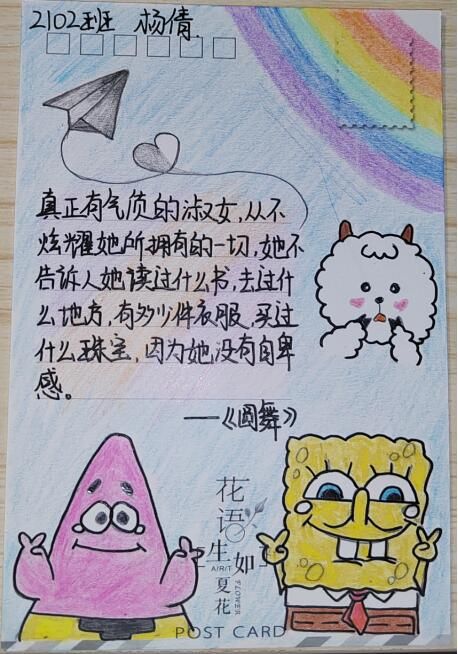 2102班 杨倩
真正有气质的淑女，从不
炫耀她所拥有的一切，她不
告诉人她读过什么书，去过什
么地方，有多少件衣服，买过
什么珠宝，因为她没有自卑
感。
——《圆舞》
花语
生如
A/R/T
夏花
FLOWER
POST CARD